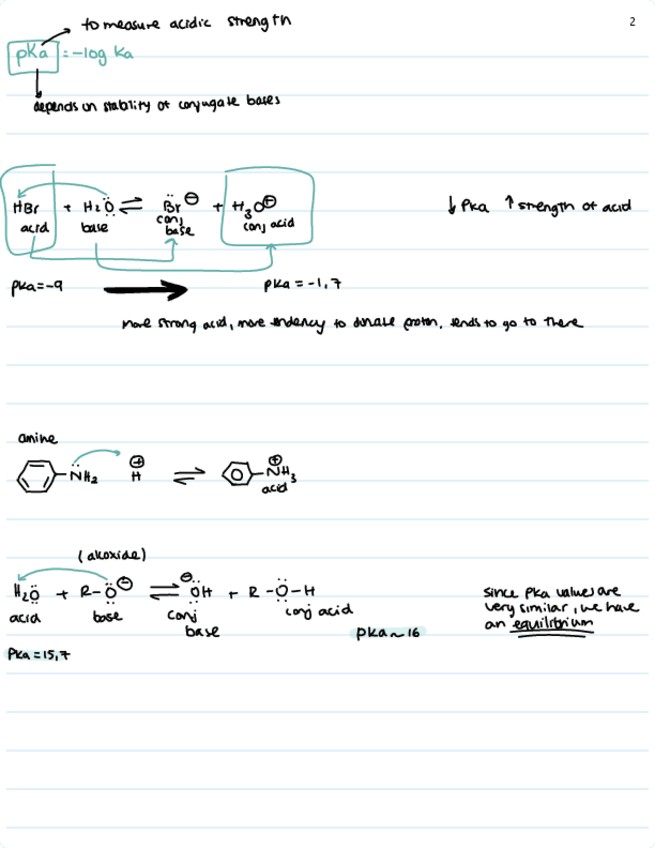 to measure acidic strength
2
pKa = -log Ka
depends on stability of conjugate bases
HBr + H₂Ö ⇌ B̈r ⊖ + H₃O⊕
↓ Pka ↑ strength of acid
acid base conj base conj acid
pka=-9 pka = -1,7
more strong acid, more tendency to donate proton, tends to go to there
amine
N̈H₂ ⊕ H ⇌ ⊕ NH₃
acid
(alkoxide)
H₂Ö + R-Ö ⊖ ⇌ ⊖ ÖH + R-Ö-H
acid base conj base conj acid
pka~16
since Pka values are
very similar, we have
an equilibrium
Pka = 15,7